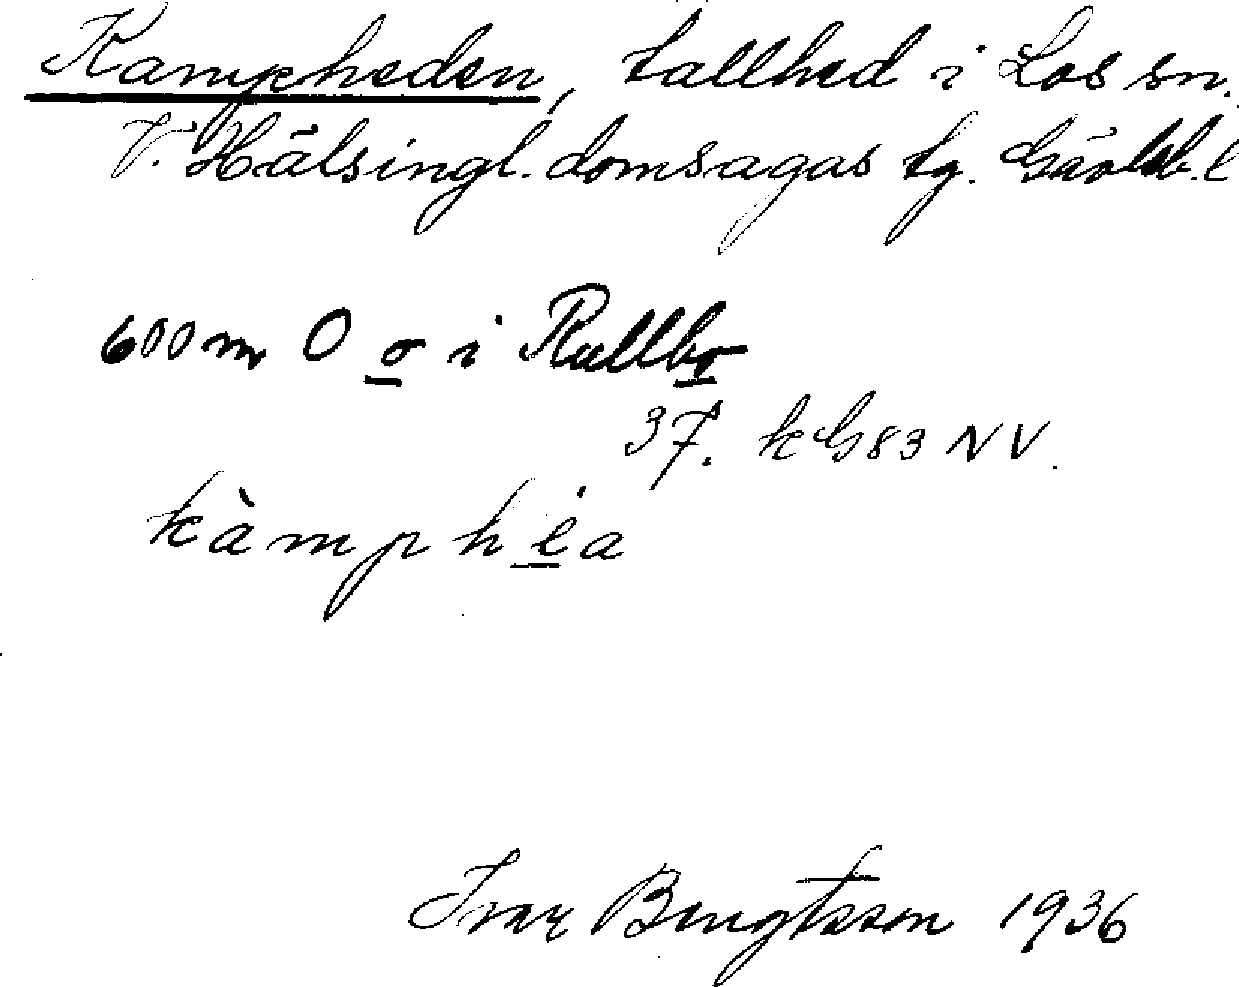 Kampheden, tallhed i Los sn.
V. Hälsingl. domsagas tg. Gävleb. l
600 m O o i Rullbo
37. kG83 NV.
kàmphéa
Ivar Bengtsson 1936